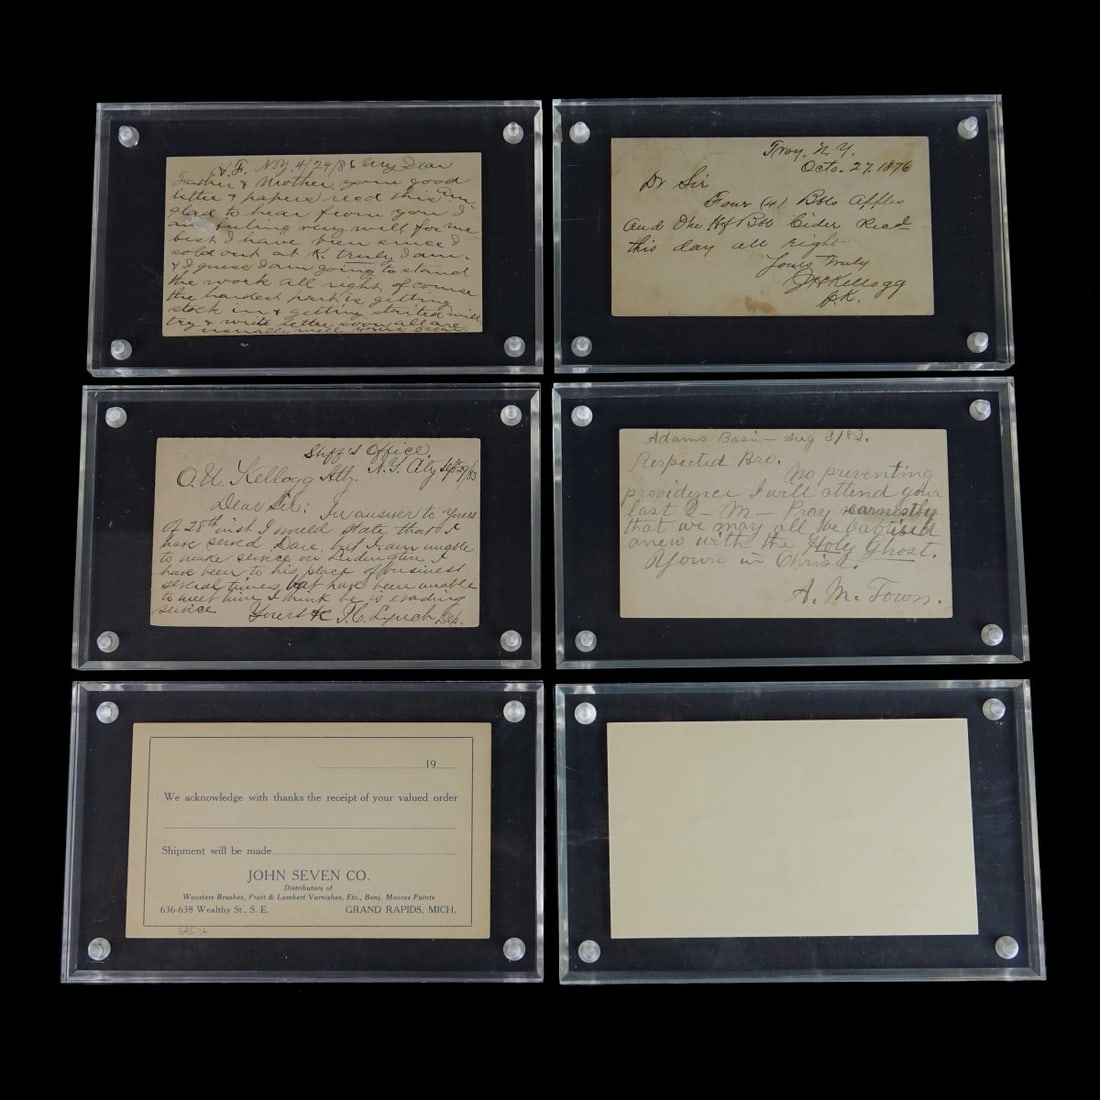 N.Y. 4/29/86 My Dear
Father & Mother your good
letter & papers recd this am
glad to hear from you I
am feeling very well for me
best I have been since I
sold out at K. truly I am.
& I guess I am going to stand
the work all right, of course
the hardest part is getting
stock in & getting started will
try & write letter soon all are
usually well yours Oscar
Troy, N.Y.
Octo. 27, 1876
Dr Sir
Four (4) Bbls Apples
and One Hf Bbl Cider Recd
this day all right
Yours Truly
Kellogg
Shff's Office
N.Y. City Sept 29/83
O. U. Kellogg Atty.
Dear Sir: In answer to yours
of 28th inst I would state that I
have served Dare, but I am unable
to make service on
have been to his place of business
several times, but have been unable
to meet him, I think he is evading
service Yours &c Lynch Dep.
Adams Basin Aug 3/82.
Respected Bro.
No preventing
providence I will attend your
last Q - M - Pray earnestly
that we may all be baptised
anew with the Holy Ghost.
Yours in Christ.
A. M. Town.
19
We acknowledge with thanks the receipt of your valued order
Shipment will be made
JOHN SEVEN CO.
Distributors of
Woosters Brushes, Pratt & Lambert Varnishes, Etc., Benj. Moores Paints
636-638 Wealthy St., S. E. GRAND RAPIDS, MICH.